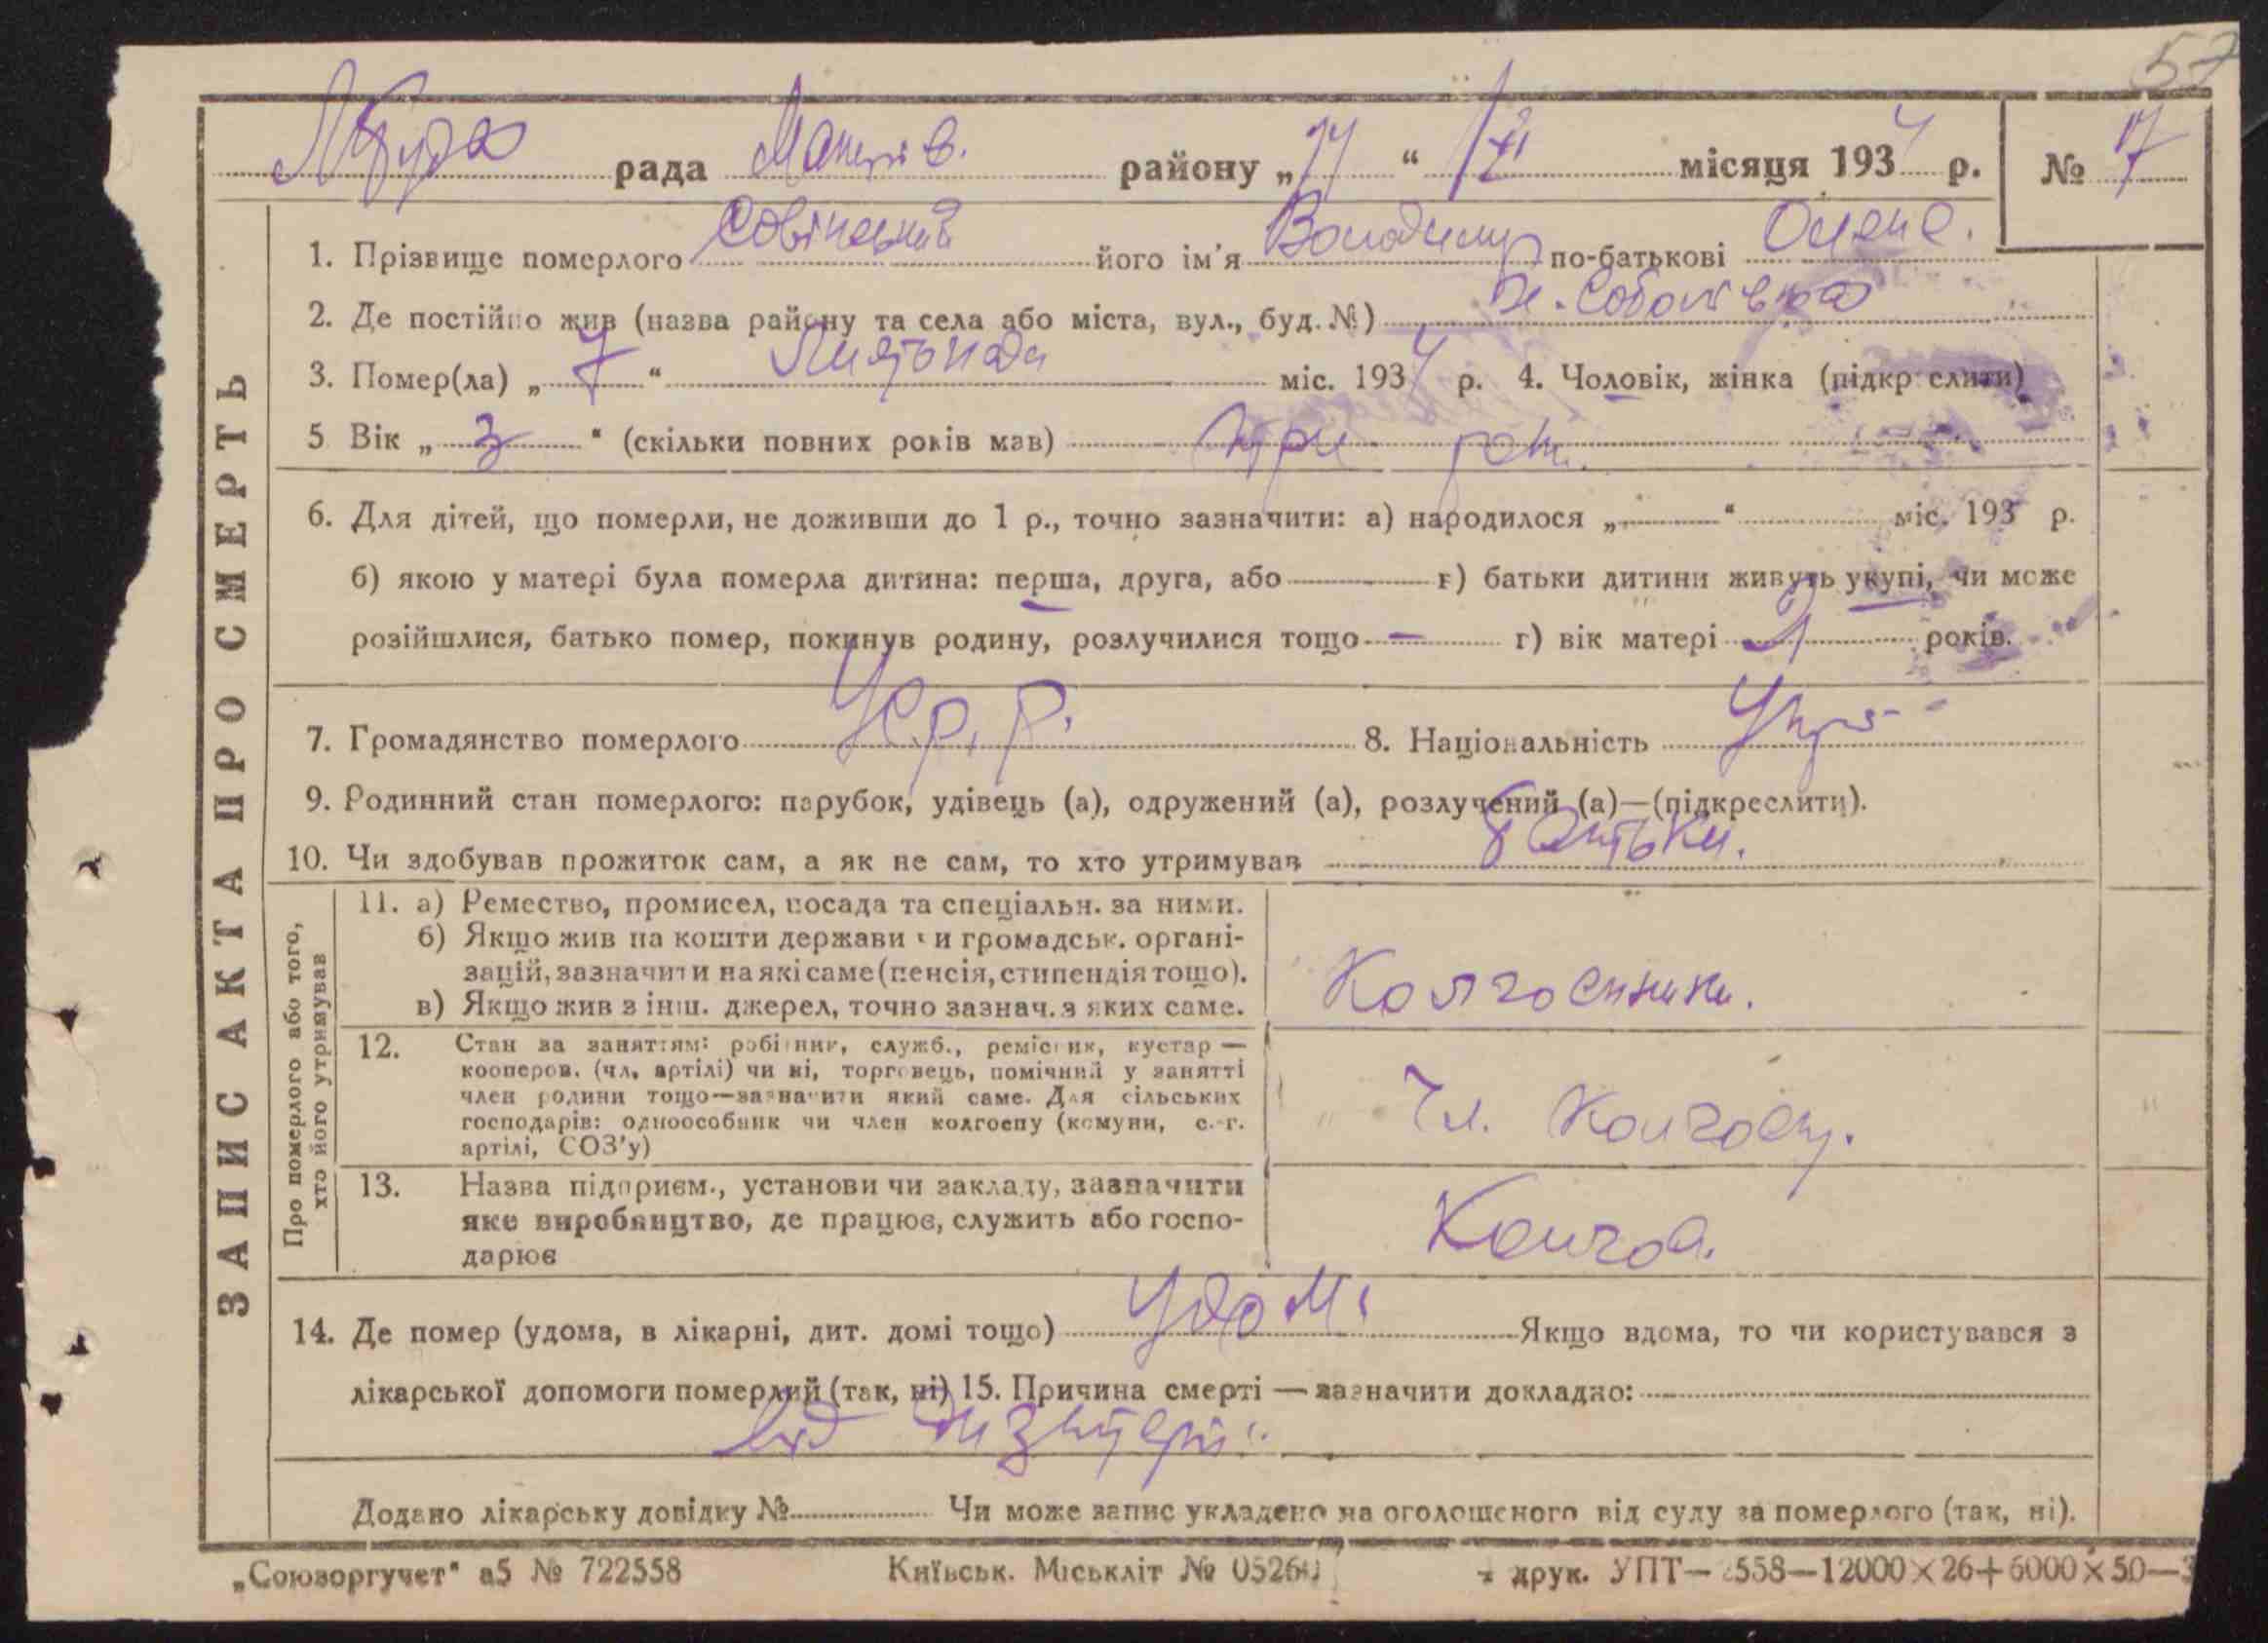 57
рада Маньків. району „ “ XI місяця 1934 р. № 17
1. Прізвище померлого його ім'я Володимир по-батькові
2. Де постійно жив (назва району та села або міста, вул., буд. №)
3. Помер(ла) „ 7 “ Листопада міс. 1934 р. 4. Чоловік, жінка (підкреслити)
5 Вік „ 3 “ (скільки повних років мав) три роки.
6. Для дітей, що померли, не доживши до 1 р., точно зазначити: а) народилося „ “ міс. 193 р.
б) якою у матері була померла дитина: перша, друга, або — г) батьки дитини живуть укупі, чи може
розійшлися, батько помер, покинув родину, розлучилися тощо — г) вік матері років.
7. Громадянство померлого 8. Національність Укр
9. Родинний стан померлого: парубок, удівець (а), одружений (а), розлучений (а)—(підкреслити).
10. Чи здобував прожиток сам, а як не сам, то хто утримував батьки.
ЗАПИС АКТА ПРО СМЕРТЬ
Про померлого або того,
хто його утримував
11. а) Ремество, промисел, посада та спеціальн. за ними.
б) Якщо жив на кошти держави чи громадськ. органі-
зацій, зазначити на які саме (пенсія, стипендія тощо).
в) Якщо жив з інш. джерел, точно зазнач. з яких саме.
Колгоспники.
12. Стан за заняттям: робітник, служб., ремісник, кустар —
кооперов. (чл. артілі) чи ні, торговець, помічний у занятті
член родини тощо—зазначити який саме. Для сільських
господарів: одноособник чи член колгоспу (комуни, с.-г.
артілі, СОЗ'у)
Чл. Колгоспу.
13. Назва підприєм., установи чи закладу, зазначити
яке виробництво, де працює, служить або госпо-
дарює
Колгосп.
14. Де помер (удома, в лікарні, дит. домі тощо) Удома Якщо вдома, то чи користувався з
лікарської допомоги померлий (так, ні) 15. Причина смерті — зазначити докладно:
від дизентерії.
Додано лікарську довідку № Чи може запис укладено на оголошеного від суду за померлого (так, ні).
„Союзоргучет“ а5 № 722558 Київськ. Міськліт № 0526 друк. УПТ— 558—12000×26+6000×50—3